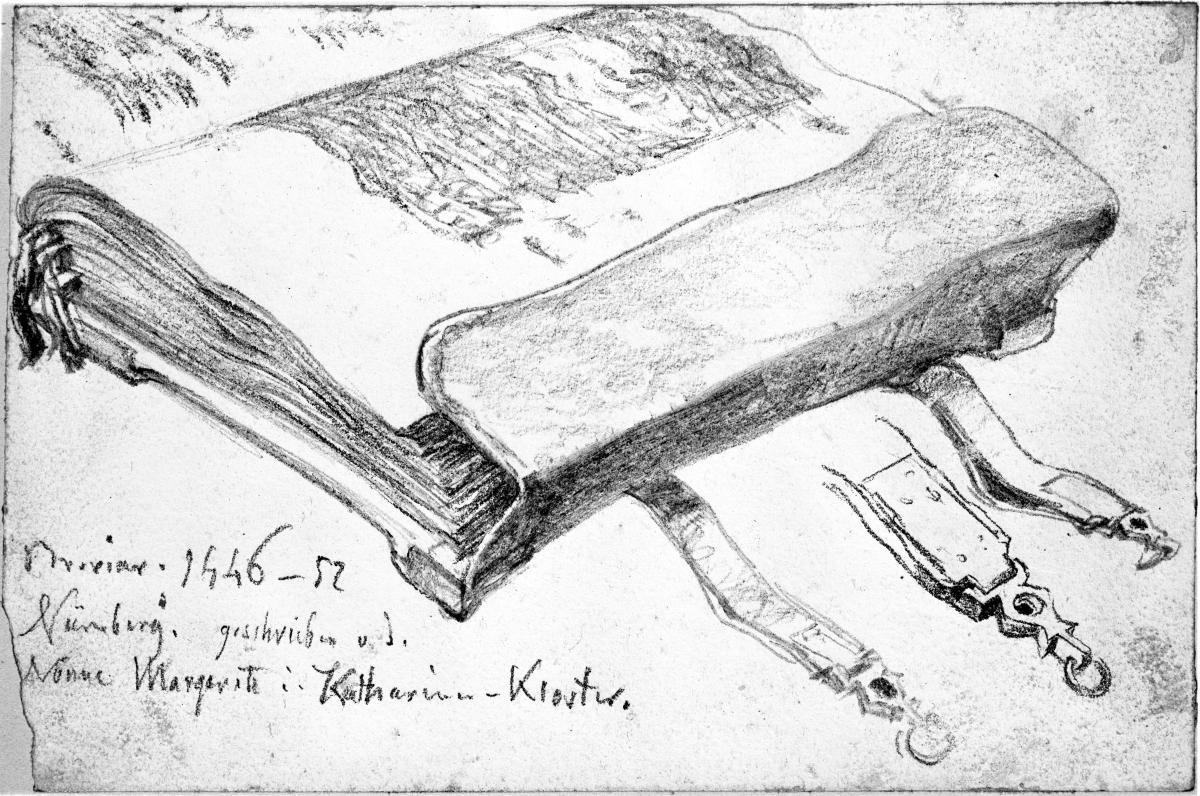 Breviar. 1446–52
Nürnberg. geschrieben v. d.
Nonne Margerite i. Katharinen-Kloster.